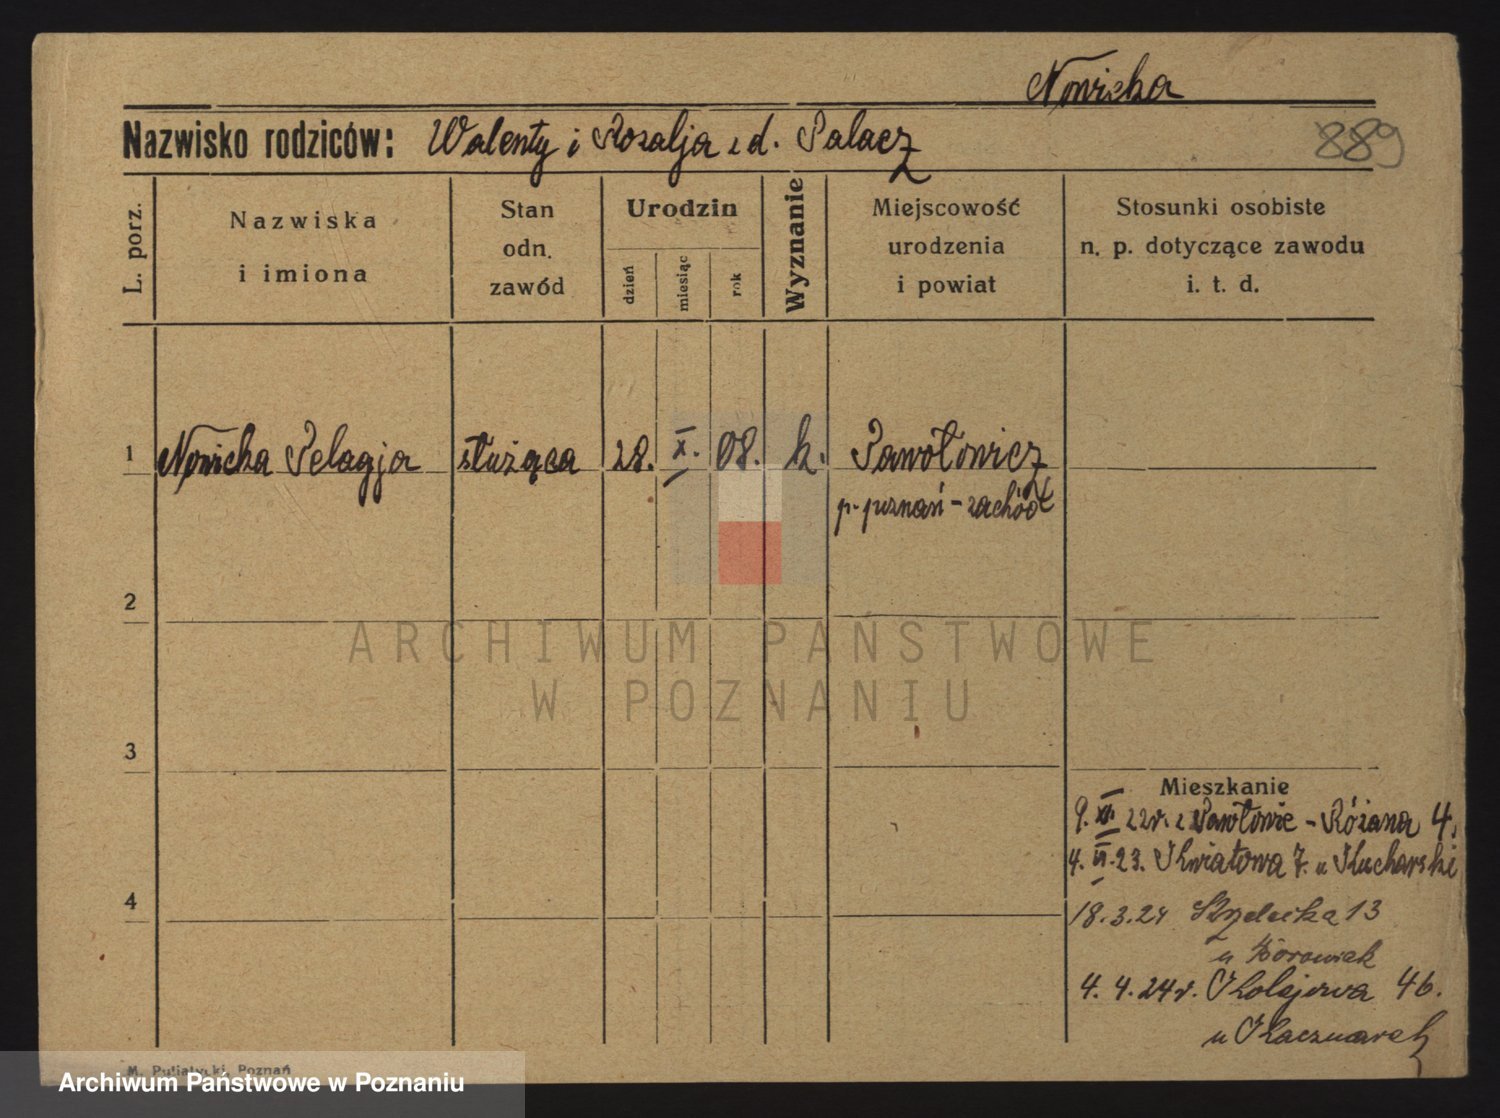 Nowicka
889
Nazwisko rodziców: Walenty i Rozalja z d. Palacz
L. porz.
Nazwiska
i imiona
Stan
odn.
zawód
Urodzin
dzień
miesiąc
rok
Wyznanie
Miejscowość
urodzenia
i powiat
Stosunki osobiste
n. p. dotyczące zawodu
i. t. d.
1 Nowicka Pelagja służąca 28. X. 08. k. Pawołowicz
p. poznań - zachód
2
ARCHIWUM PAŃSTWOWE
W POZNANIU
3
Mieszkanie
9. XI. 22r. z Pawłowic - Różana 4.
4. VI. 23. Kwiatowa 7. u Kucharski
4
18.3.24 13
u Borowiak
4. 4. 24r. Kolejowa 46.
u Kaczmarek
M. Putiatycki, Poznań
Archiwum Państwowe w Poznaniu